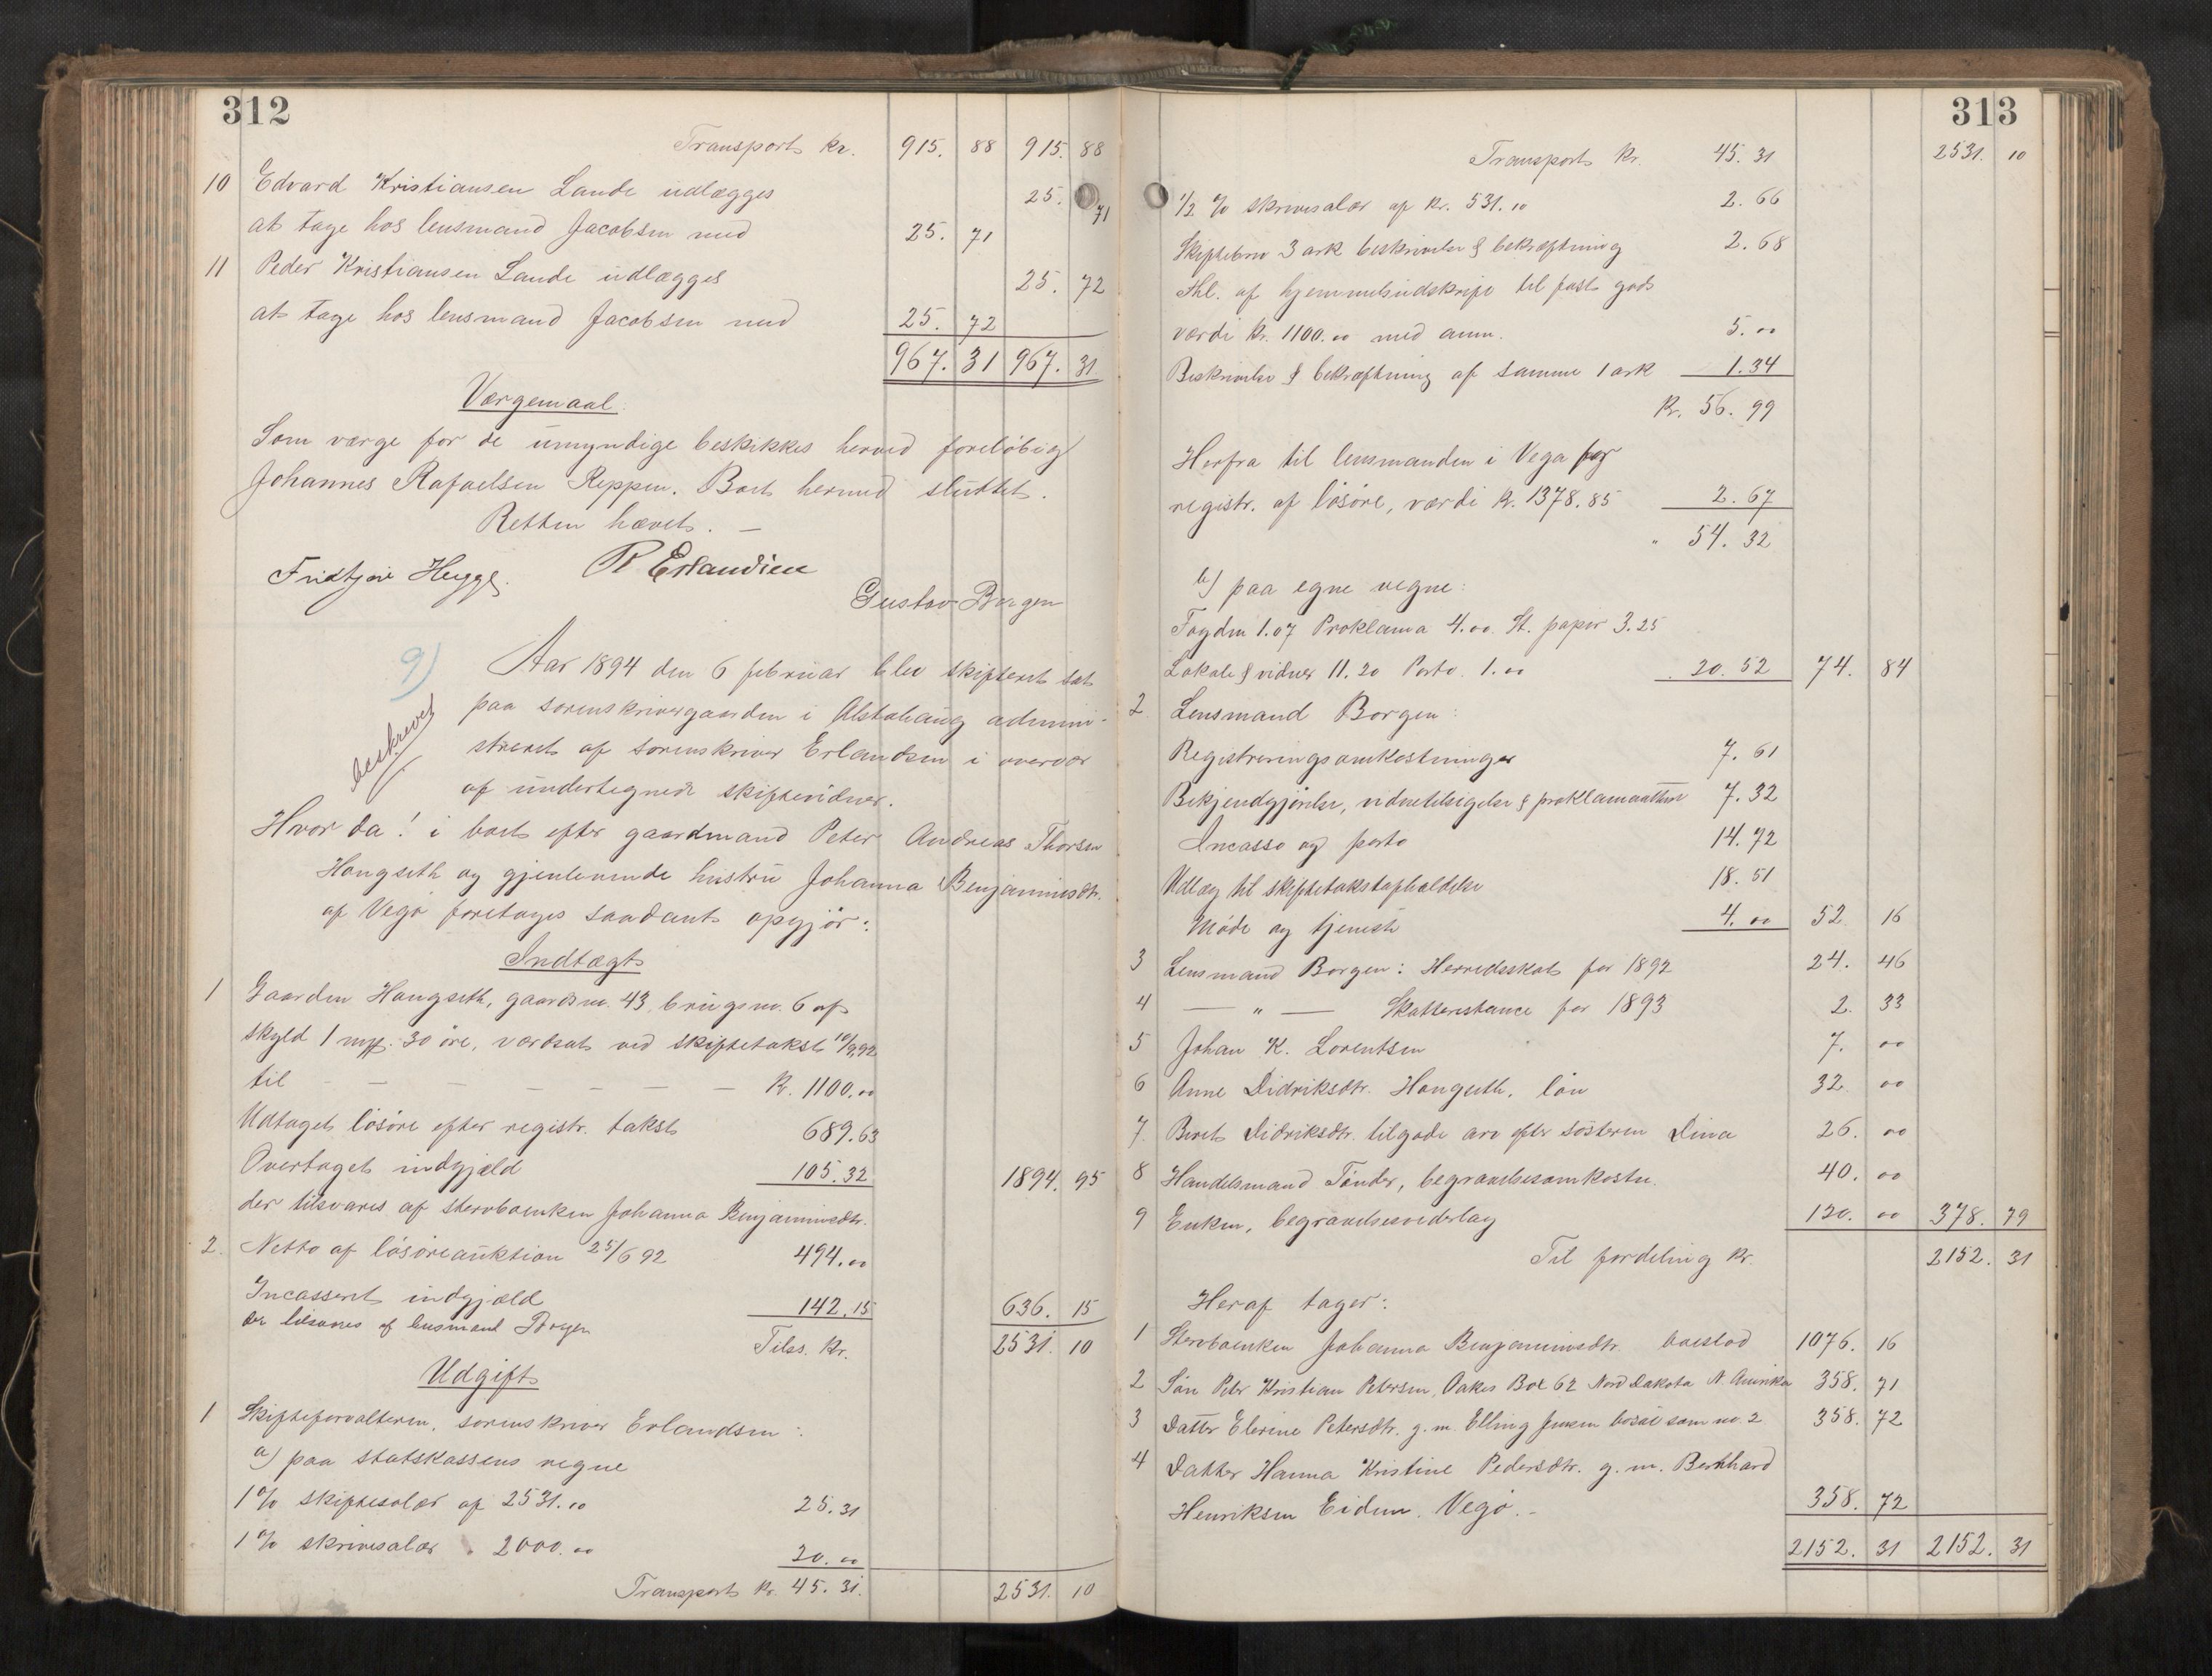 312
Transport kr. 915. 88 915. 88
10 Edvard Kristiansen Lande udlægges 25. 71
at tage hos lensmand Jacobsen med 25. 71
11 Peder Kristiansen Lande udlægges 25. 72
at tage hos lensmand Jacobsen med 25. 72
967. 31 967. 31
Værgemaal.
Som værge for de umyndige beskikkes herved foreløbig
Johannes Rafaelsen Reppen. Boet hermed sluttet.
Retten hævet. —
Fridtjov Hegge. R Erlandsen
Gustav Borgen
9) Aar 1894 den 6 februar blev skifteret sat
beskrevet
paa sorenskrivergaarden i Alstahaug admini-
streret af sorenskriver Erlandsen i overvær
af undertegnede skiftevidner.
Hvor da! i boet efter gaardmand Peter Andreas Thorsen
Hongseth og gjenlevende hustru Johanna Benjaminsdtr.
af Vegø foretages saadant opgjør:
Indtægt
1 Gaarden Hongseth, gaardsno. 43, brugsno. 6 af
skyld 1 mk. 30 øre, værdsat ved skiftetakst 10/9 92
til — — — — — — — Kr. 1100.00
Udtaget løsøre efter registr. takst 689.63
Overtaget indgjæld 105.32 1894. 95
der tilsvares af sterboenken Johanna Benjaminsdtr.
2. Netto af løsøreauktion 25/6 92 494.00
Incasseret indgjæld 142.15 636. 15
der tilsvares af lensmand Borgen
Tils. kr. 2531. 10
Udgift
1 Skifteforvalteren, sorenskriver Erlandsen:
a) paa statskassens vegne
1 % skiftesalær af 2531.10 25.31
1 % skrivesalær " 2000.00 20.00
Transport kr. 45. 31. 2531. 10
313
Transport kr. 45. 31 2531. 10
1/2 % skrivesalær af kr. 531.10 2. 66
Skiftebrev 3 ark beskrivelse & bekræftning 2. 68
Thl. af hjemmelsudskrift til fast gods
værdi kr. 1100.00 med anm. 5.00
Beskrivelse & bekræftning af samme 1 ark 1.34
Kr. 56. 99
Herfra til lensmanden i Vega for
registr. af løsøre, værdi kr. 1378.85 2. 67
" 54. 32
b) paa egne vegne:
Fogden 1.07 Proklama 4.00 St. papir 3.25
Lokale & vidner 11.20 Porto 1.00 20. 52 74. 84
2 Lensmand Borgen:
Registreringsomkostninger 7. 61
Bekjendgjørelse, vidnetilsigelse & proklamaattest 7. 32
Incasso og porto 14. 72
Udlæg til skiftetakstafholdelse 18. 51
Møde og tjeneste 4.00 52. 16
3 Lensmand Borgen: Herredsskat for 1892 24. 46
4 — " — Skatterestance for 1893 2. 33
5 Johan K. Lorentsen 7. 00
6 Anne Didriksdtr. Hongseth, løn 32. 00
7. Beret Didriksdtr. tilgode arv efter søsteren Dina 26. 00
8 Handelsmand Tønder, begravelsesomkostn. 40. 00
9 Enken, begravelsesvederlag 120. 00 378. 79
Til fordeling kr. 2152. 31
Heraf tager:
1 Sterboenken Johanna Benjaminsdtr. boeslod 1076. 16
2 Søn Peter Kristian Petersen, Oakes Box 62 Nord Dakota N. Amerika 358. 71
3 Datter Elerine Petersdtr. g. m. Elling Jensen bosat som no. 2 358. 72
4 Datter Hanna Kristine Pedersdtr. g. m. Bernhard
Henriksen Eidem, Vegø. - 358. 72
2152. 31 2152. 31